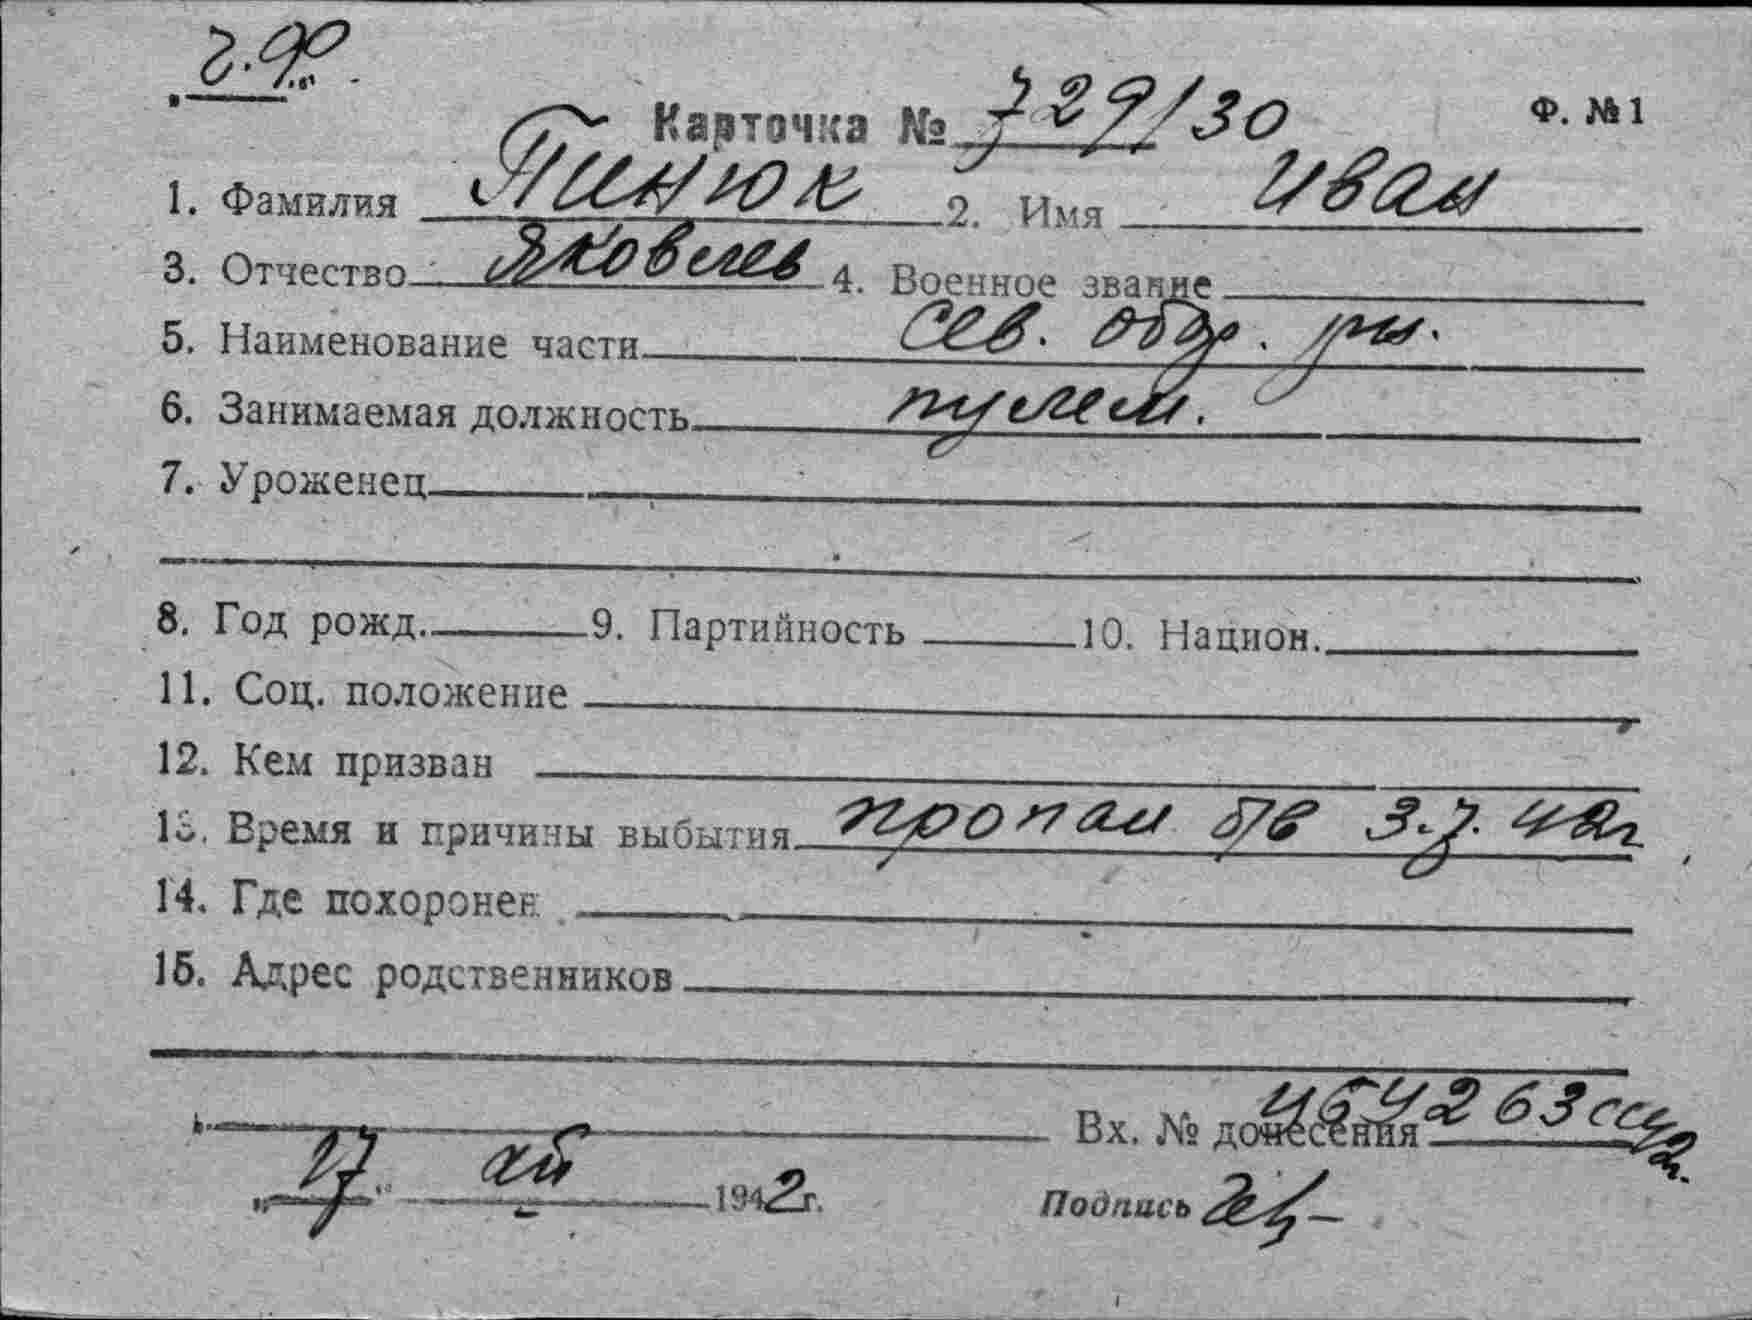 ч.Ф.
Карточка № 729/30 Ф. № 1
1. Фамилия Пинюк 2. Имя Иван
3. Отчество Яковлев 4. Военное звание
5. Наименование части Сев. обор. рн.
6. Занимаемая должность пулем.
7. Уроженец
8. Год рожд. 9. Партийность 10. Национ.
11. Соц. положение
12. Кем призван
13. Время и причины выбытия пропал б/в 3.7.42г
14. Где похоронен
15. Адрес родственников
Вх. № донесения
1942г.
Подпись